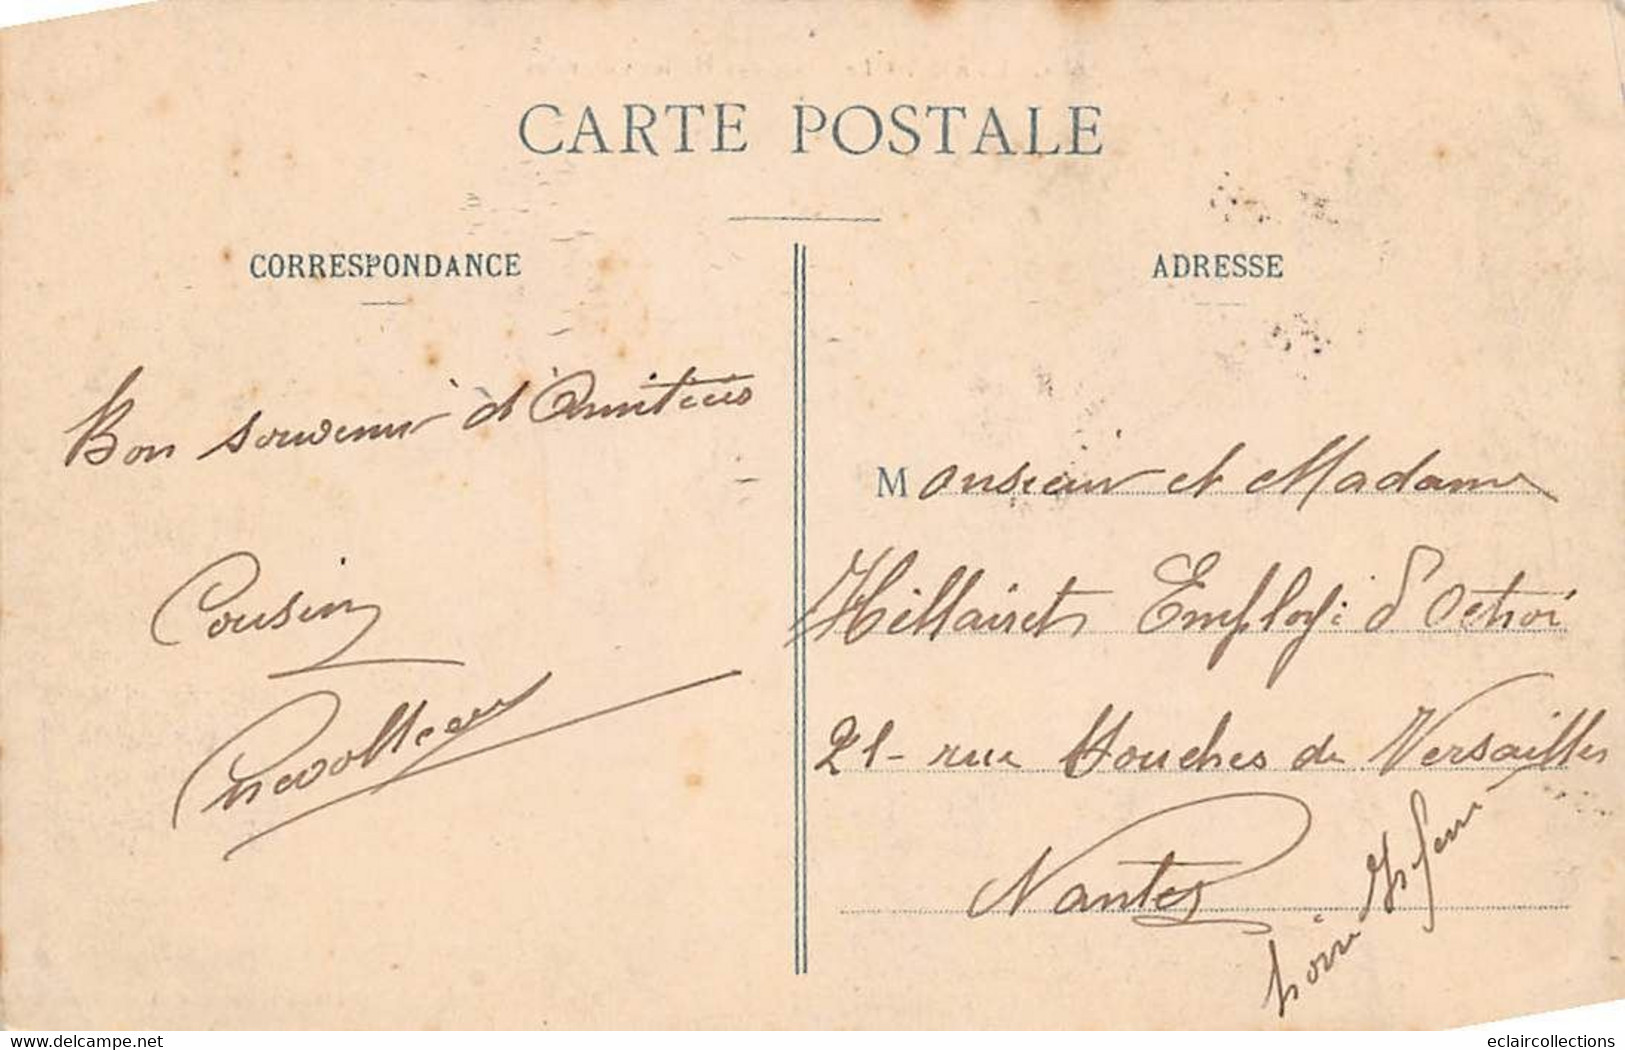 CARTE POSTALE
CORRESPONDANCE
ADRESSE
Bon souvenir d'Amitiées
Cousin
Monsieur et Madame
Hillairet Employé d'Octroi
21 - rue Houches de Versailles
Nantes
Loire Inferre
delcampe.net
eclaircollections